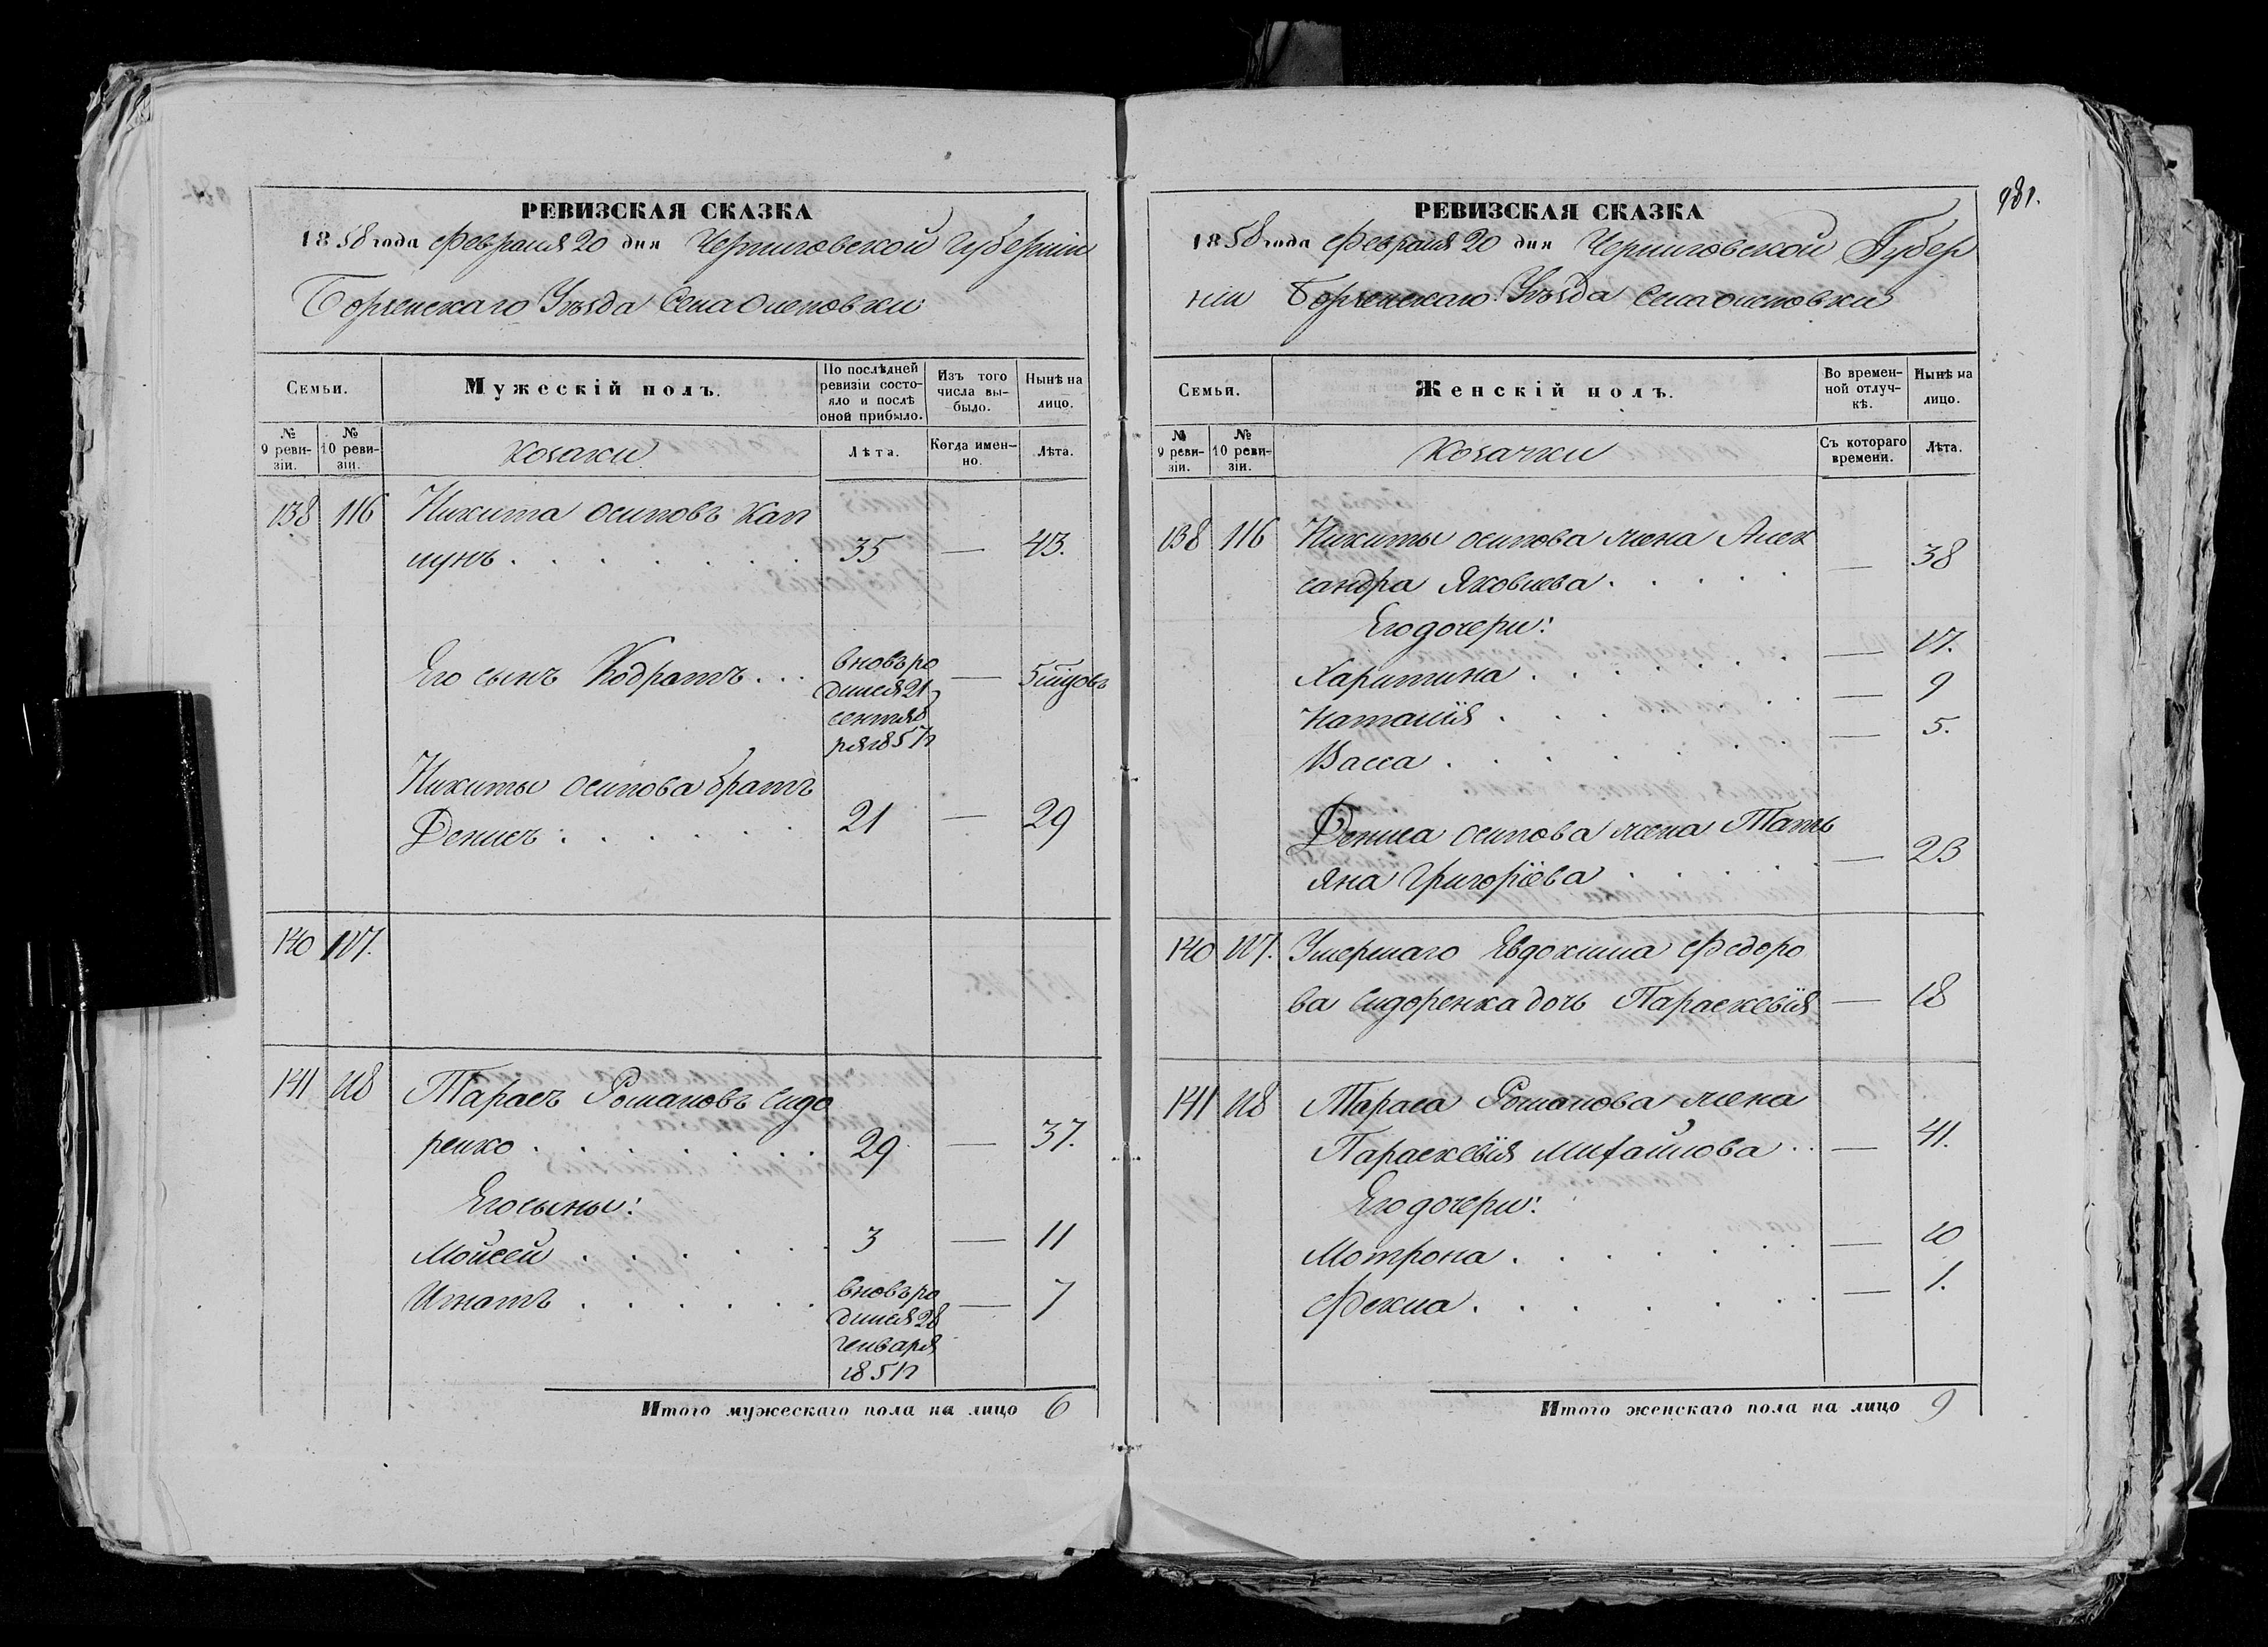 РЕВИЗСКАЯ СКАЗКА
1858 года Февраля 20 дня Черниговской Губернiи
Борзенскаго Уѣзда Села
Семьи.
Мужескій полъ.
По послѣдней ревизіи состояло и послѣ оной прибыло.
Изъ того числа выбыло.
Нынѣ на лицо.
№ 9 ревизіи.
№ 10 ревизіи.
Козаки
Лѣта.
Когда именно.
Лѣта.
138 116 Никита Осиповъ Кап
лунъ . . . . . . . 35 — 43.
Его сынъ Кодратъ . . . вновь ро — 5 мѣсяцовъ
дился 21
сентяб
ря 1857 г
Никиты Осипова братъ
Денисъ . . . . . . 21 — 29
140 117.
141 118 Тарасъ Романовъ Сидо
ренко . . . . . . . 29 — 37.
Его сыны:
Мойсей . . . . . . 3 — 11
Игнатъ . . . . . . вновь ро — 7
дился 28
генваря
1851 г
Итого мужескаго пола на лицо 6
981.
РЕВИЗСКАЯ СКАЗКА
1858 года Февраля 20 дня Черниговской Губер
нiи Борзенскаго Уѣзда Села
Семьи.
Женскій полъ.
Во временной отлучкѣ.
Нынѣ на лицо.
№ 9 ревизіи.
№ 10 ревизіи.
Козачки
Съ котораго времени.
Лѣта.
138 116 Никиты Осипова жена Алек
сандра Яковлева . . . . . — 38
Его дочери:
Харитина . . . . . . — 17.
Наталія . . . . . . — 9
Васса . . . . . . — 5.
Дениса Осипова жена Тать
яна Григоріева . . . . . — 23
140 117. Умершаго Явдокима Федоро
ва Сидоренка дочь Параскевія — 18
141 118 Тараса Романова жена
Параскевія Михайлова . . — 41.
Его дочери:
Мотрона . . . . . . . — 10
Фекла . . . . . . . — 1.
Итого женскаго пола на лицо 9